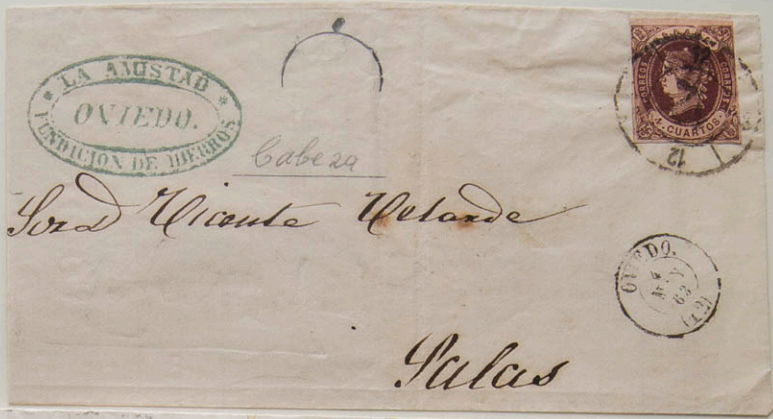 LA AMISTAD
OVIEDO.
FUNDICION DE HIERROS
CORREOS
4 CUARTOS
12
Cabeza
Vicente Velarde
OVIEDO.
MAY
63
(12)
Salas